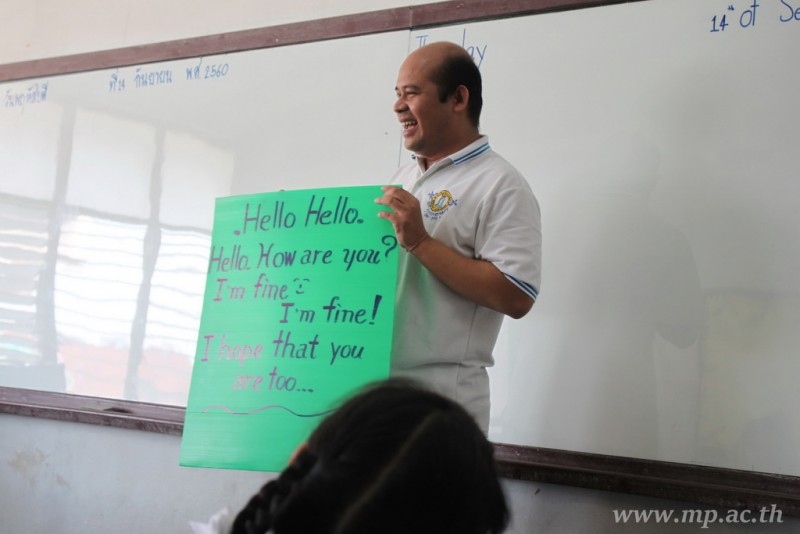 วันพฤหัสบดี ที่ 14 กันยายน พ.ศ. 2560
14th of Se
Hello Hello.
Hello. How are you?
I'm fine
I'm fine!
I hope that you
are too...
www.mp.ac.th